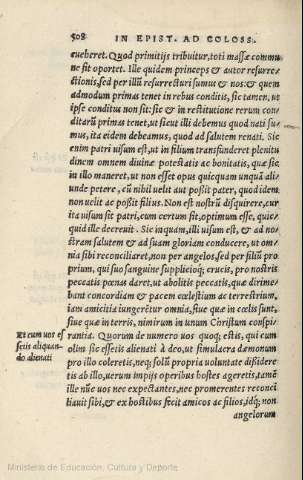 508 IN EPIST. AD COLOSS.
eueheret. Quod primitijs tribuitur, toti massæ commu
ne sit oportet. Ille quidem princeps & autor resurre
ctionis, sed per illũ resurrecturi sumus & nos: & quem
admodum primas tenet in rebus conditis, sic tamen, ut
ipse conditus non sit: sic & in restitutione rerum con
ditarũ primas tenet, ut sicut illi debemus quod nati su
mus, ita eidem debeamus, quod ad salutem renati. Sic
enim patri uisum est, ut in filium transfunderet plenitu
dinem omnem diuinæ potestatis ac bonitatis, quæ sic
in illo maneret, ut non esset opus quicquam unquã ali
unde petere, cũ nihil uelit aut possit pater, quod idem
non uelit ac possit filius. Non est nostrũ disquirere, cur
ita uisum sit patri, cum certum sit, optimum esse, quic
quid ille decreuit. Sic inquam, illi uisum est, & ad no
stram salutem & ad suam gloriam conducere, ut om
nia sibi reconciliaret, non per angelos, sed per filiũ pro
prium, qui suo sanguine supplicioq; crucis, pro nostris
peccatis pœnas daret, ut abolitis peccatis, quæ dirime
bant concordiam & pacem cœlestium ac terrestrium,
iam amicitia iungerẽtur omnia, siue quæ in cœlis sunt,
siue quæ in terris, nimirum in unum Christum conspi
Et cum uos es rantia. Quorum de numero uos quoq; estis, qui cum
setis aliquan- olim sic essetis alienati à deo, ut simulacra dæmonum
do alienati pro illo coleretis, neq; solũ propria uoluntate dissidere
tis ab illo, uerum impijs operibus hostes ageretis, tamẽ
ille nũc uos nec expectantes, nec promerentes reconci
liauit sibi, & ex hostibus fecit amicos ac filios, idq; non
angelorum
Ministerio de Educación, Cultura y Deporte